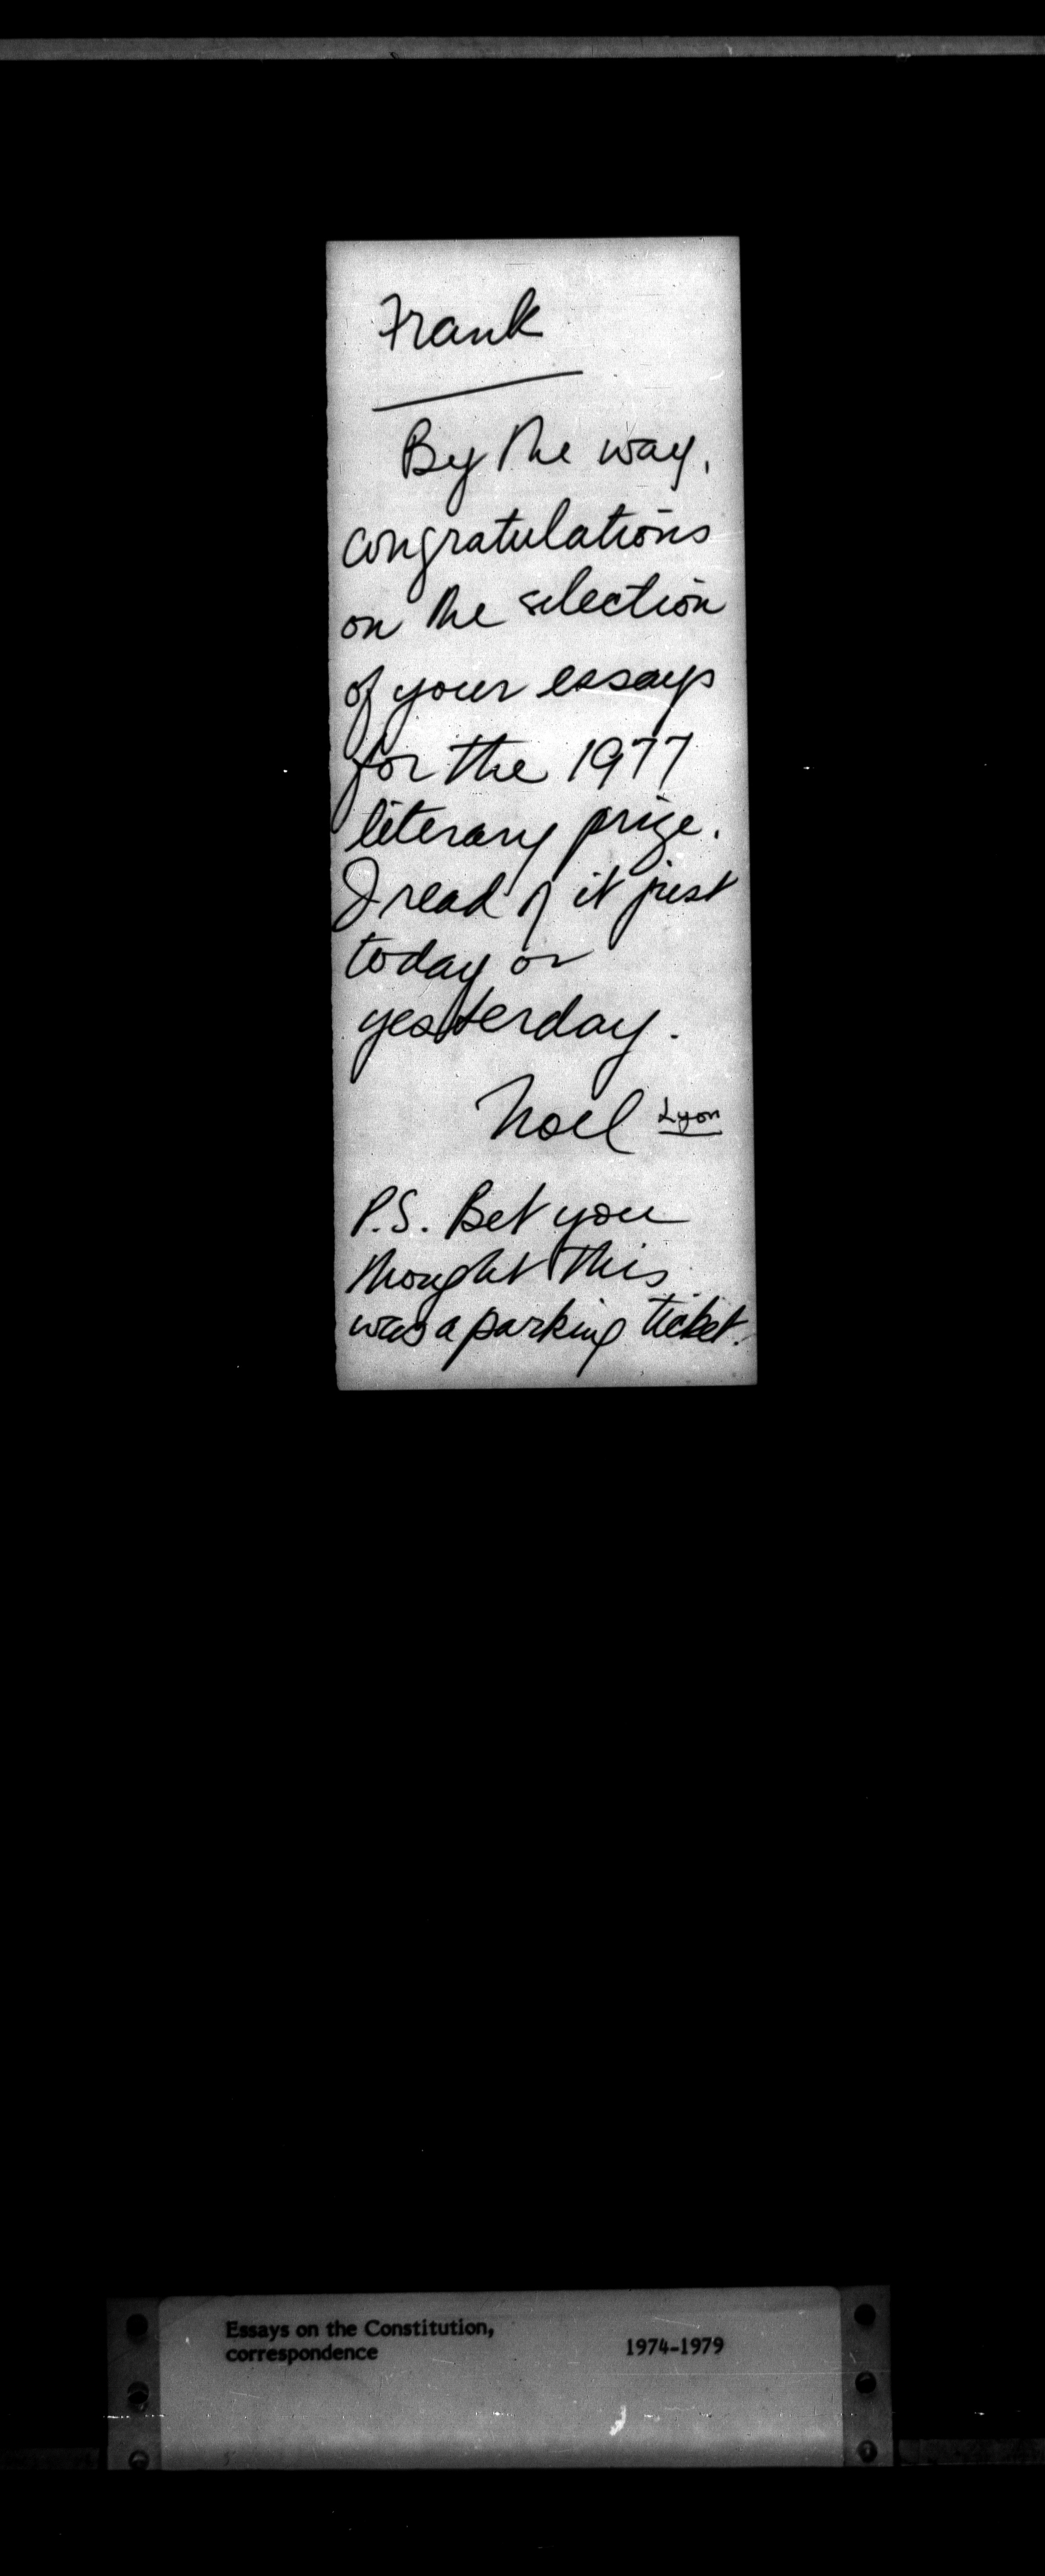 Frank
By the way,
congratulations
on the selection
of your essays
for the 1977
literary prize.
I read of it just
today or
yesterday.
Noel Lyon
P.S. Bet you
thought this
was a parking ticket.
Essays on the Constitution,
correspondence 1974-1979